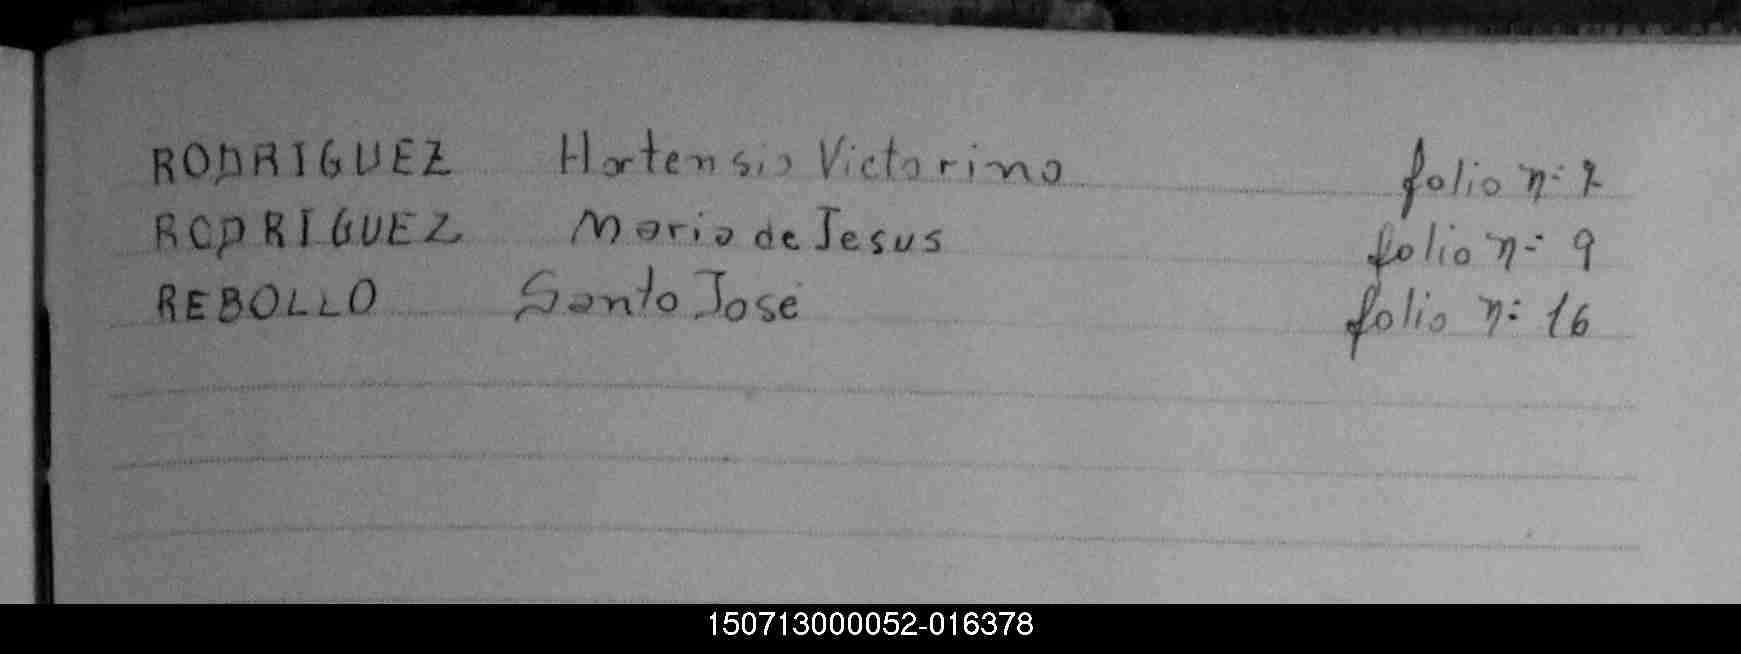 RODRIGUEZ Hortensio Victorino folio n: 7
RODRIGUEZ Maria de Jesus folio n: 9
REBOLLO Santo José folio n: 16
150713000052-016378